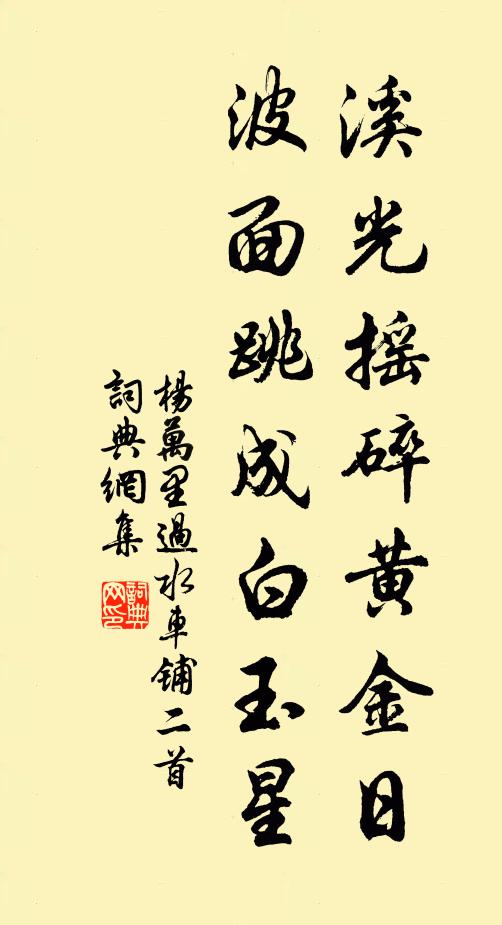 溪光摇碎黄金日
波面跳成白玉星
楊萬里過水車鋪二首
詞典網集
詞典
网印